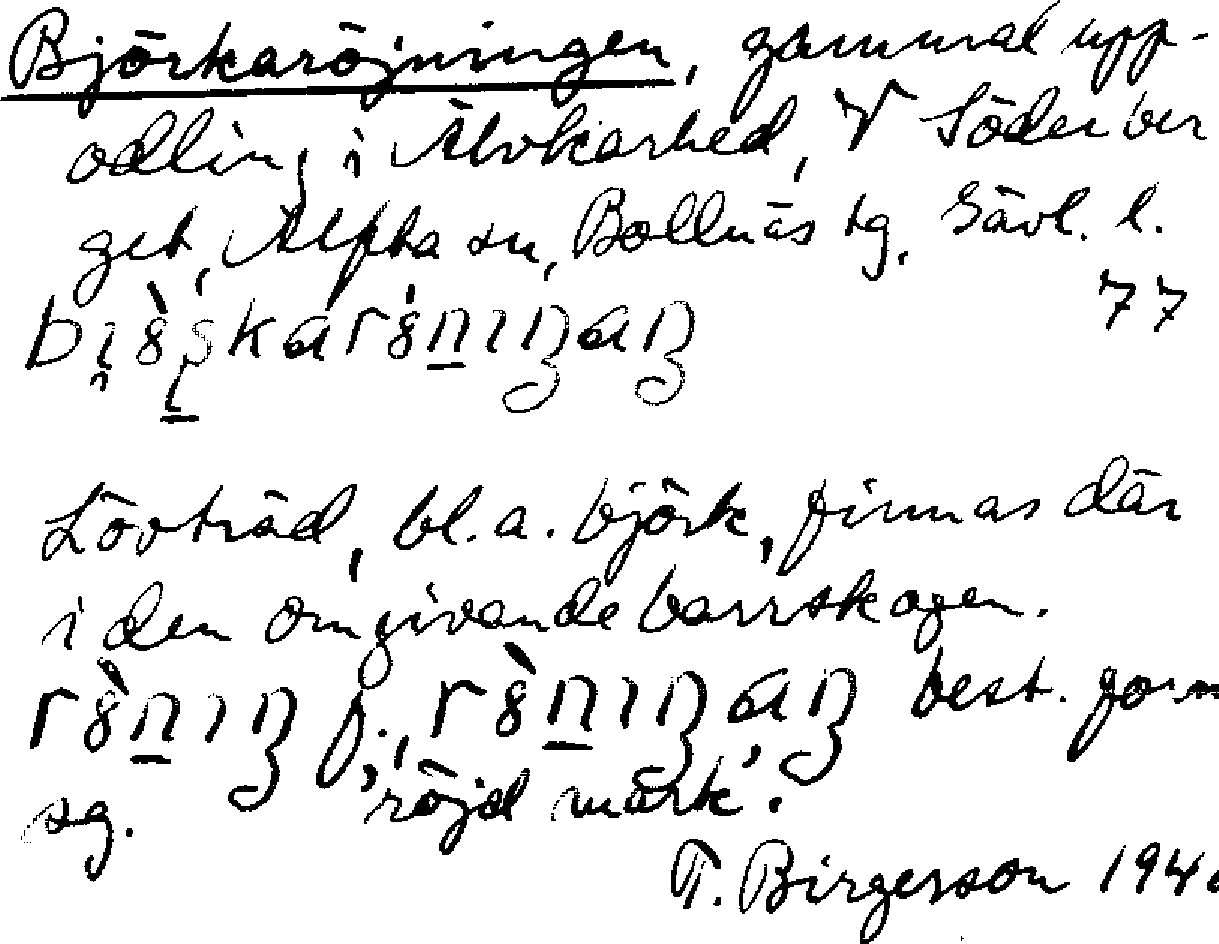 Björkaröjningen, gammal upp-
odling i Älvkarhed, V Söderber
get, Alfta sn, Bollnäs tg, Gävl. l.
77
Lövträd, bl.a. björk, finnas där
i den omgivande barrskogen.
f.; best. form
sg. 'röjd mark'.
T. Birgerson 194